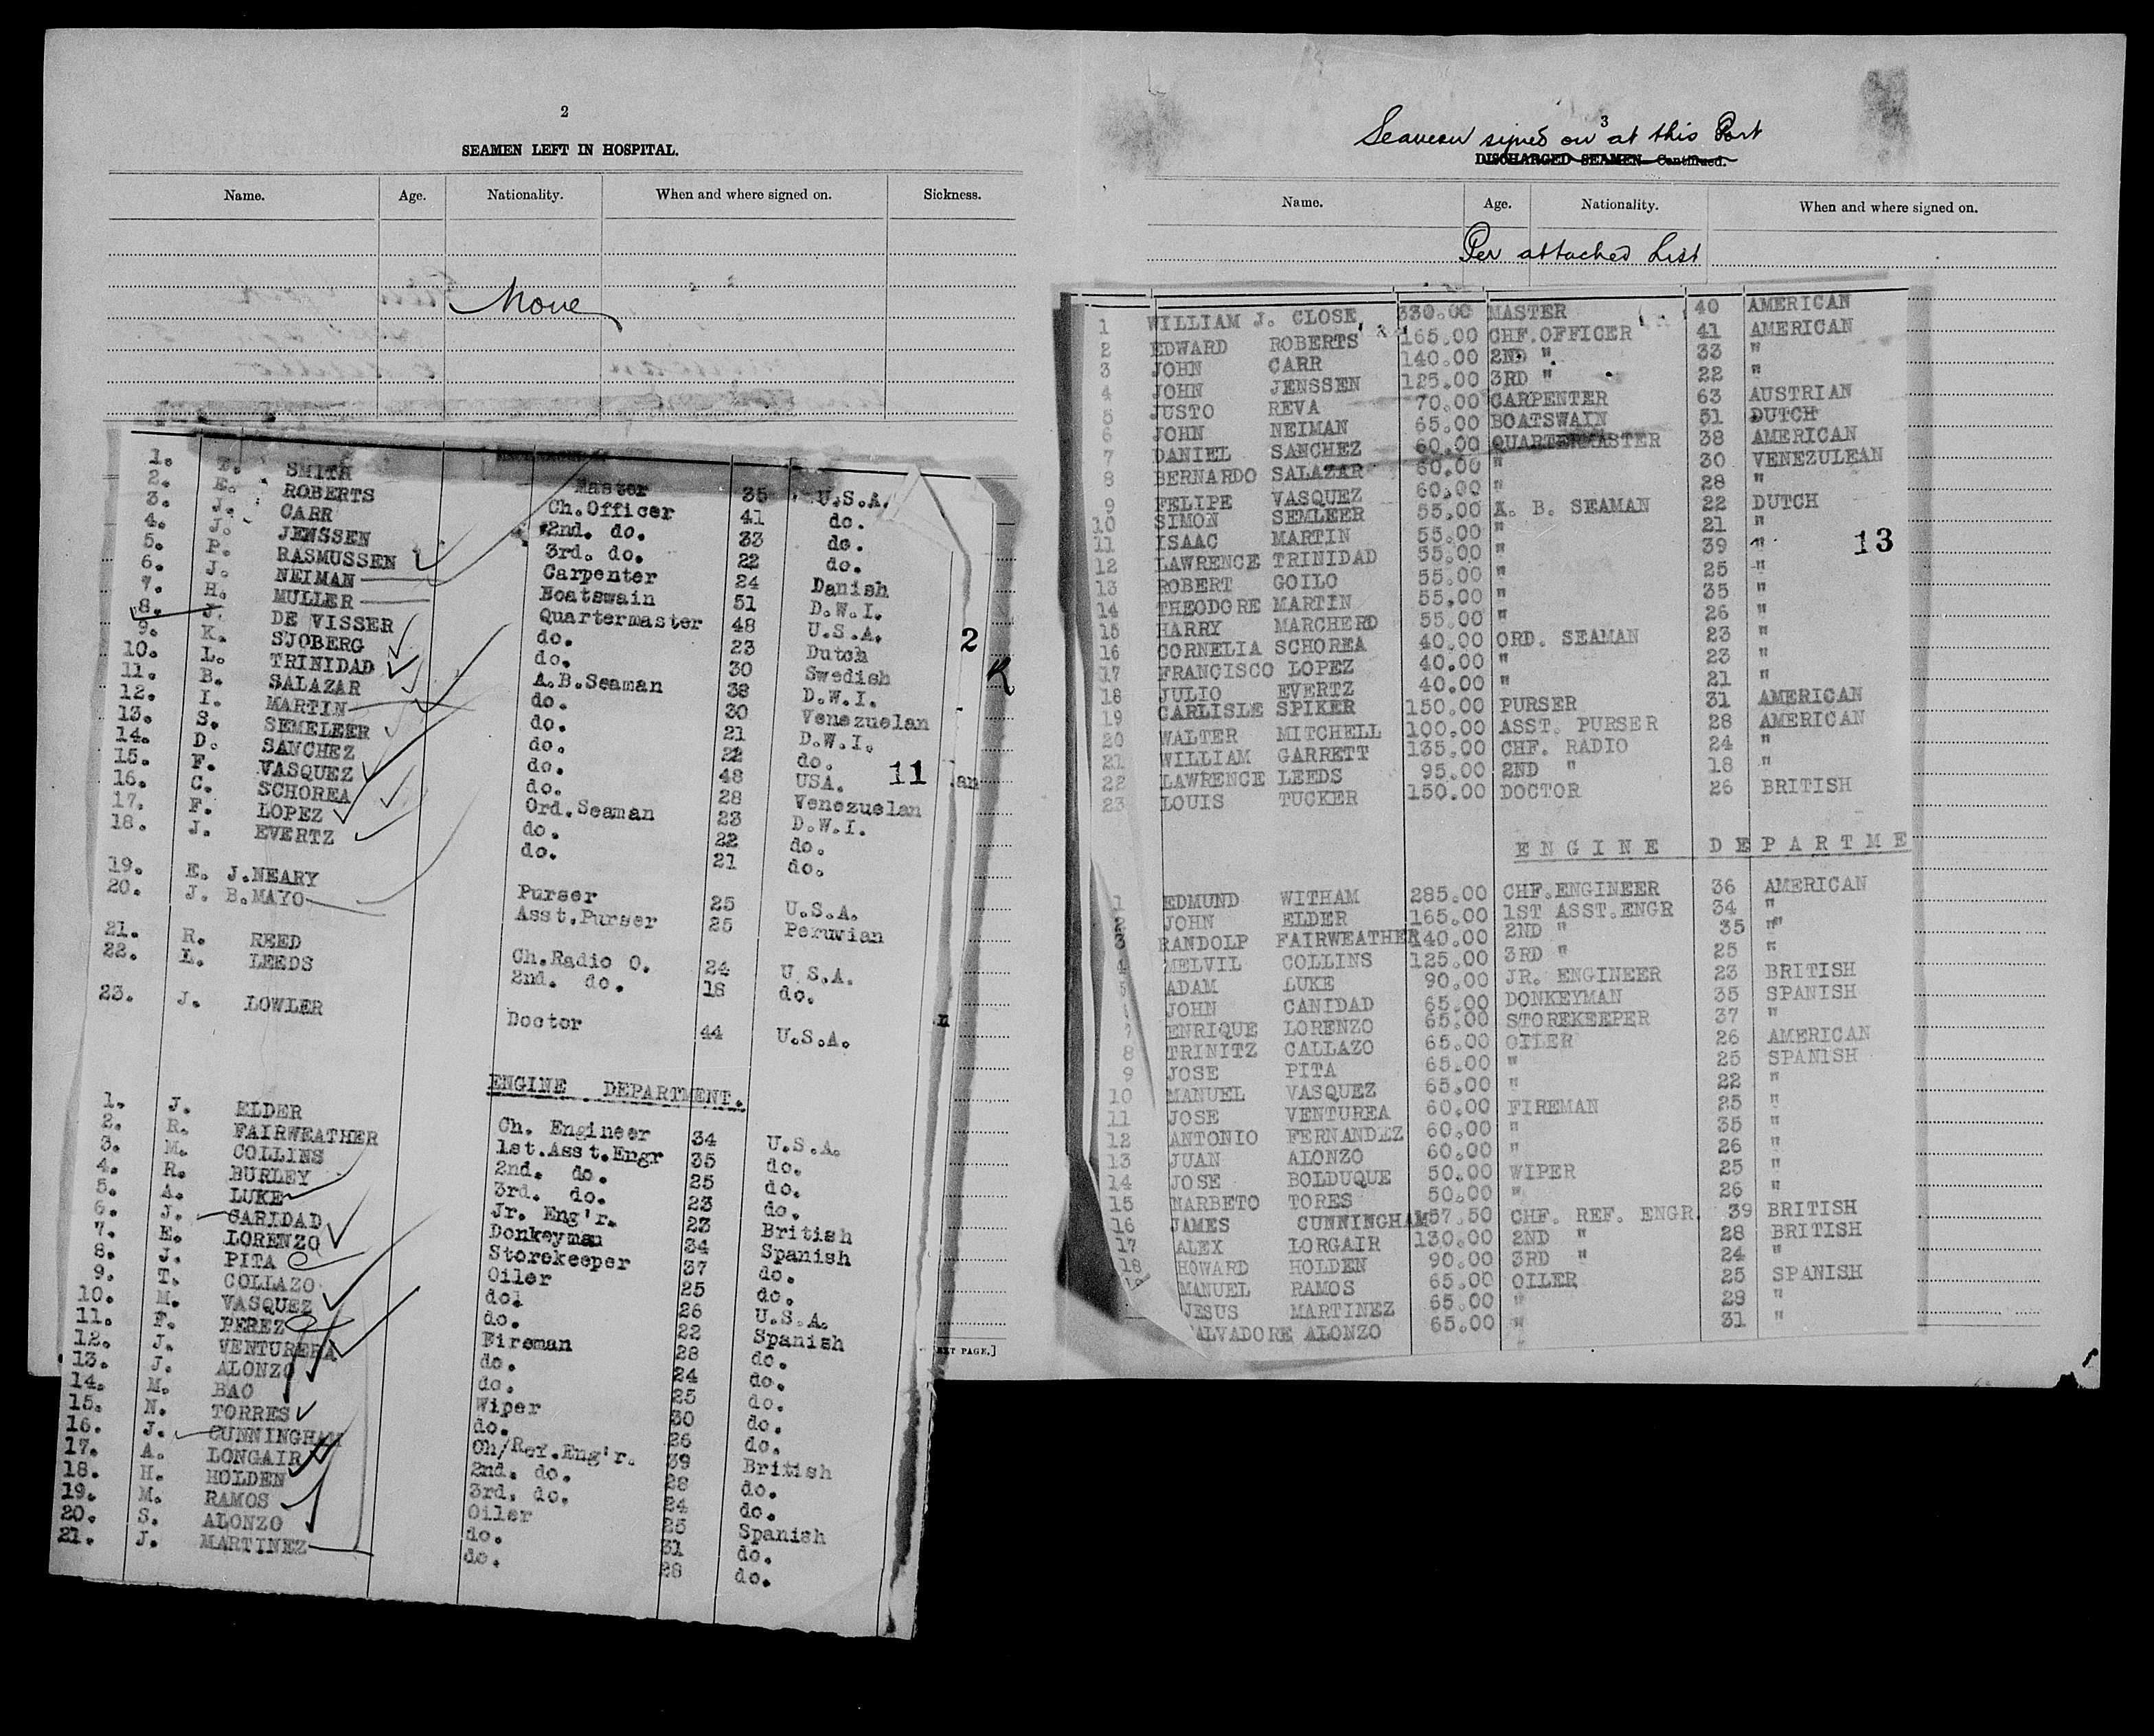 2
SEAMEN LEFT IN HOSPITAL.
Name. Age. Nationality. When and where signed on. Sickness.
None
1. T. SMITH Master 35 U.S.A.
2. E. ROBERTS Ch.Officer 41 do.
3. J. CARR 2nd. do. 33 do.
4. J. JENSSEN 3rd. do. 22 do.
5. P. RASMUSSEN Carpenter 24 Danish
6. J. NEIMAN Boatswain 51 D.W.I.
7. H. MULLER Quartermaster 48 U.S.A.
8. J. DE VISSER do. 23 Dutch
9. K. SJOBERG do. 30 Swedish
10. L. TRINIDAD A.B.Seaman 38 D.W.I.
11. B. SALAZAR do. 30 Venezuelan
12. I. MARTIN do. 21 D.W.I.
13. S. SEMELEER do. 22 do.
14. D. SANCHEZ do. 48 USA.
15. F. VASQUEZ do. 28 Venezuelan
16. C. SCHOREA Ord.Seaman 23 D.W.I.
17. F. LOPEZ do. 22 do.
18. J. EVERTZ do. 21 do.
19. E. J.NEARY Purser 25 U.S.A.
20. J. B.MAYO Asst.Purser 25 Peruvian
21. R. REED Ch.Radio O. 24 U.S.A.
22. L. LEEDS 2nd. do. 18 do.
23. J. LOWLER Doctor 44 U.S.A.
2
K
11
an
n
ENGINE DEPARTMENT.
1. J. ELDER Ch. Engineer 34 U.S.A.
2. R. FAIRWEATHER 1st.Asst.Engr 35 do.
3. M. COLLINS 2nd. do. 25 do.
4. R. BURLEY 3rd. do. 23 do.
5. A. LUKE Jr. Eng'r. 23 British
6. J. CARIDAD Donkeyman 34 Spanish
7. E. LORENZO Storekeeper 37 do.
8. J. PITA Oiler 25 do.
9. T. COLLAZO do. 26 U.S.A.
10. M. VASQUEZ do. 22 Spanish
11. F. PEREZ Fireman 28 do.
12. J. VENTURERA do. 24 do.
13. J. ALONZO do. 25 do.
14. M. BAO Wiper 30 do.
15. N. TORRES do. 26 do.
16. J. CUNNINGHAM Ch/Ref.Eng'r. 39 British
17. A. LONGAIR 2nd. do. 28 do.
18. H. HOLDEN 3rd. do. 24 do.
19. M. RAMOS Oiler 25 Spanish
20. S. ALONZO do. 31 do.
21. J. MARTINEZ do. 28 do.
EXT PAGE.]
3
Seamen signed on at this Port
DISCHARGED SEAMEN—Continued.
Name. Age. Nationality. When and where signed on.
Per attached List
1 WILLIAM J. CLOSE 330.00 MASTER 40 AMERICAN
2 EDWARD ROBERTS 165.00 CHF.OFFICER 41 AMERICAN
3 JOHN CARR 140.00 2ND " 33 "
4 JOHN JENSSEN 125.00 3RD " 22 "
5 JUSTO REVA 70.00 CARPENTER 63 AUSTRIAN
6 JOHN NEIMAN 65.00 BOATSWAIN 51 DUTCH
7 DANIEL SANCHEZ 60.00 QUARTERMASTER 38 AMERICAN
8 BERNARDO SALAZAR 60.00 " 30 VENEZULEAN
9 FELIPE VASQUEZ 60.00 " 28 "
10 SIMON SEMLEER 55.00 A. B. SEAMAN 22 DUTCH
11 ISAAC MARTIN 55.00 " 21 "
12 LAWRENCE TRINIDAD 55.00 " 39 "
13 ROBERT GOILO 55.00 " 25 "
14 THEODORE MARTIN 55.00 " 35 "
15 HARRY MARCHERD 55.00 " 26 "
16 CORNELIA SCHOREA 40.00 ORD. SEAMAN 23 "
17 FRANCISCO LOPEZ 40.00 " 23 "
18 JULIO EVERTZ 40.00 " 21 "
19 CARLISLE SPIKER 150.00 PURSER 31 AMERICAN
20 WALTER MITCHELL 100.00 ASST. PURSER 28 AMERICAN
21 WILLIAM GARRETT 135.00 CHF. RADIO 24 "
22 LAWRENCE LEEDS 95.00 2ND " 18 "
23 LOUIS TUCKER 150.00 DOCTOR 26 BRITISH
13
ENGINE DEPARTME
1 EDMUND WITHAM 285.00 CHF.ENGINEER 36 AMERICAN
2 JOHN ELDER 165.00 1ST ASST.ENGR 34 "
3 RANDOLP FAIRWEATHER 140.00 2ND " 35 "
4 MELVIL COLLINS 125.00 3RD " 25 "
5 ADAM LUKE 90.00 JR. ENGINEER 23 BRITISH
JOHN CANIDAD 65.00 DONKEYMAN 35 SPANISH
7 ENRIQUE LORENZO 65.00 STOREKEEPER 37 "
8 TRINITZ CALLAZO 65.00 OILER 26 AMERICAN
9 JOSE PITA 65.00 " 25 SPANISH
10 MANUEL VASQUEZ 65.00 " 22 "
11 JOSE VENTUREA 60.00 FIREMAN 25 "
12 ANTONIO FERNANDEZ 60.00 " 35 "
13 JUAN ALONZO 60.00 " 26 "
14 JOSE BOLDUQUE 50.00 WIPER 25 "
15 NARBETO TORES 50.00 " 26 "
16 JAMES CUNNINGHAM 57.50 CHF. REF. ENGR. 39 BRITISH
17 ALEX LORGAIR 130.00 2ND " 28 BRITISH
18 HOWARD HOLDEN 90.00 3RD " 24 "
MANUEL RAMOS 65.00 OILER 25 SPANISH
JESUS MARTINEZ 65.00 " 28 "
ALVADORE ALONZO 65.00 " 31 "